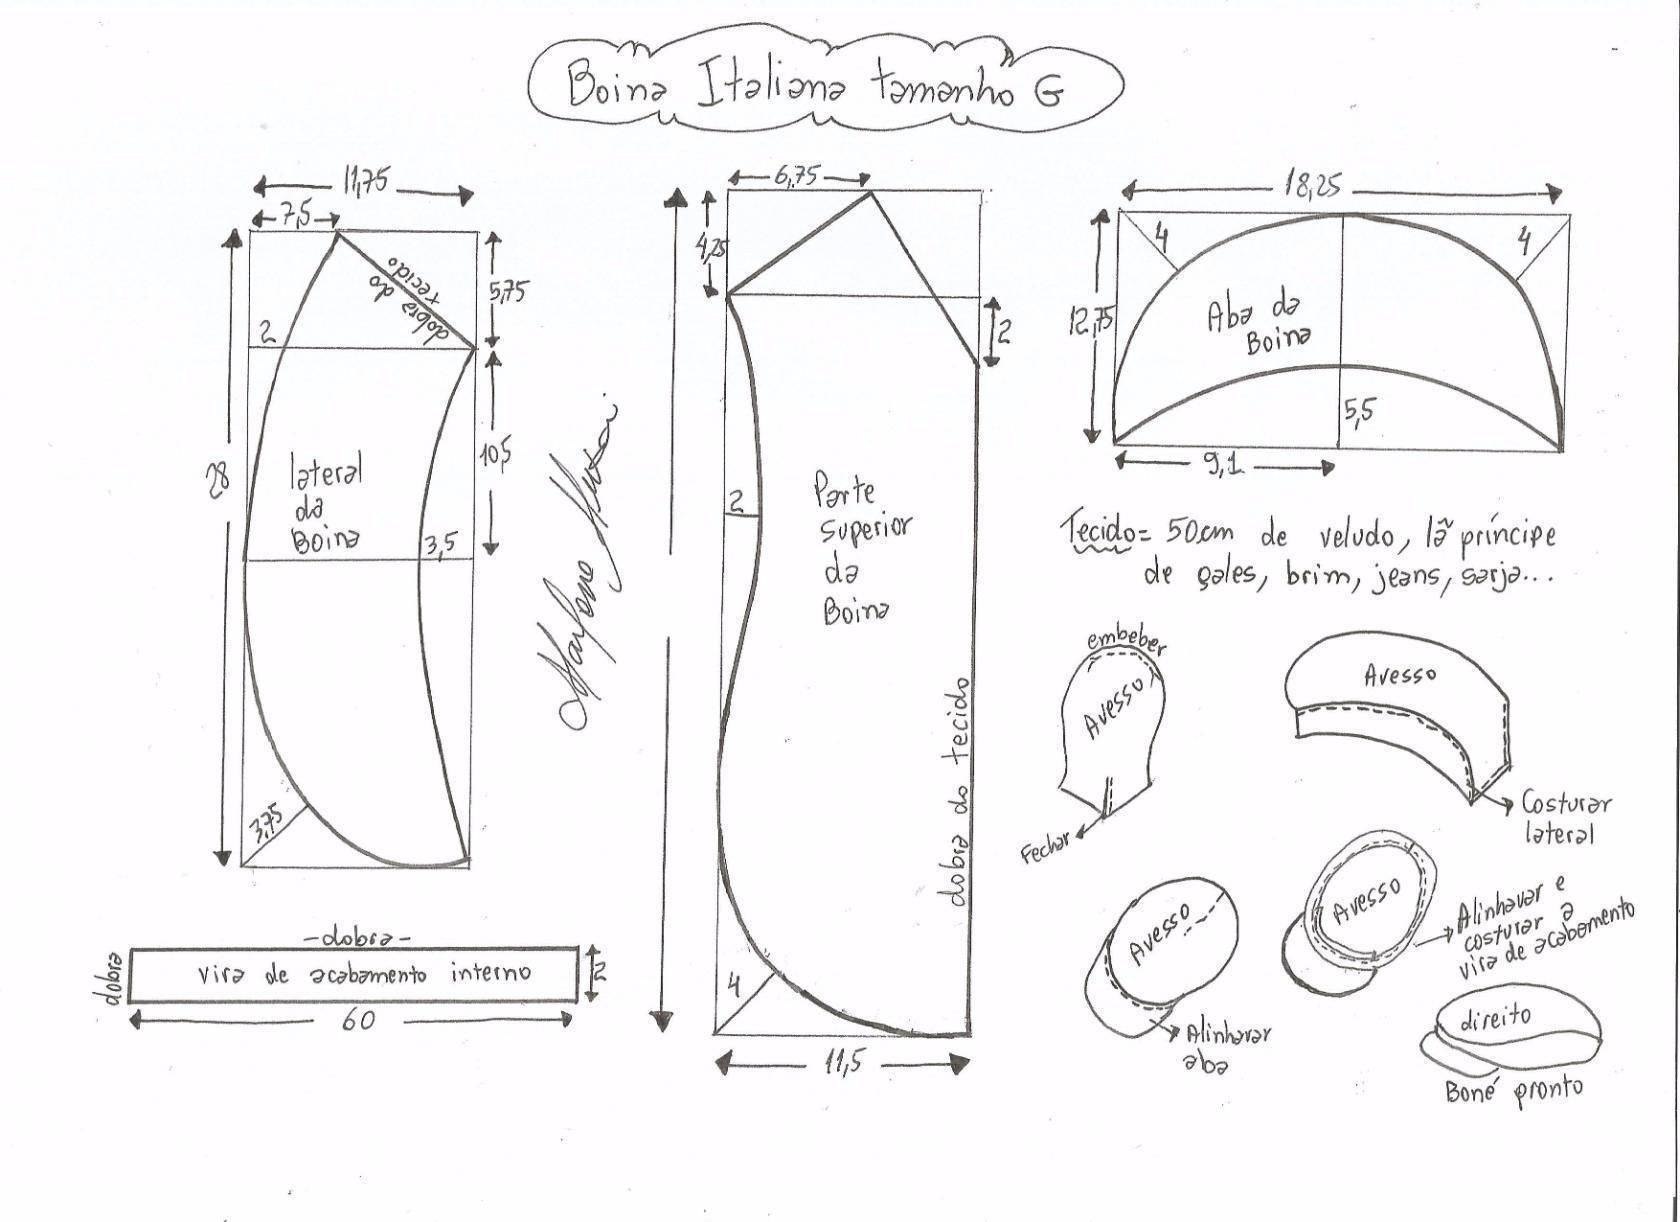 Boina Italiana tamanho G
11,75
7,5
5,75
dobra do
tecido
2
28
10,5
lateral
da
Boina
3,5
3,75
6,75
4,25
2
2
Parte
superior
da
Boina
dobra do tecido
4
11,5
18,25
4
4
12,75
Aba da
Boina
5,5
9,1
Tecido = 50cm de veludo, lã príncipe
de gales, brim, jeans, sarja...
embeber
Avesso
Fechar
Avesso
Costurar
lateral
Avesso
Alinhavar
aba
Avesso
Alinhavar e
costurar a
vira de acabamento
direito
Boné pronto
-dobra-
dobra
vira de acabamento interno
2
60